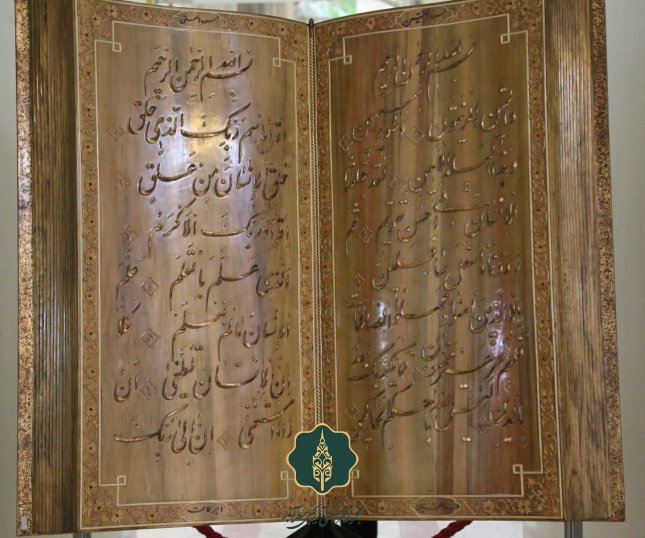 بسم الله الرحمن الرحیم
والتین والزیتون وطور سینین
وهذا البلد الامین لقد خلقنا
الانسان فی احسن تقویم ثم
رددناه اسفل سافلین
الا الذین امنوا وعملوا الصالحات
فلهم اجر غیر ممنون فما یکذبک بعد
بالدین الیس الله باحکم الحاکمین
بسم الله الرحمن الرحیم
اقرا باسم ربک الذی خلق
خلق الانسان من علق
اقرا وربک الاکرم
الذی علم بالقلم علم
الانسان ما لم یعلم کلا
ان الانسان لیطغی ان
راه استغنی ان الی ربک